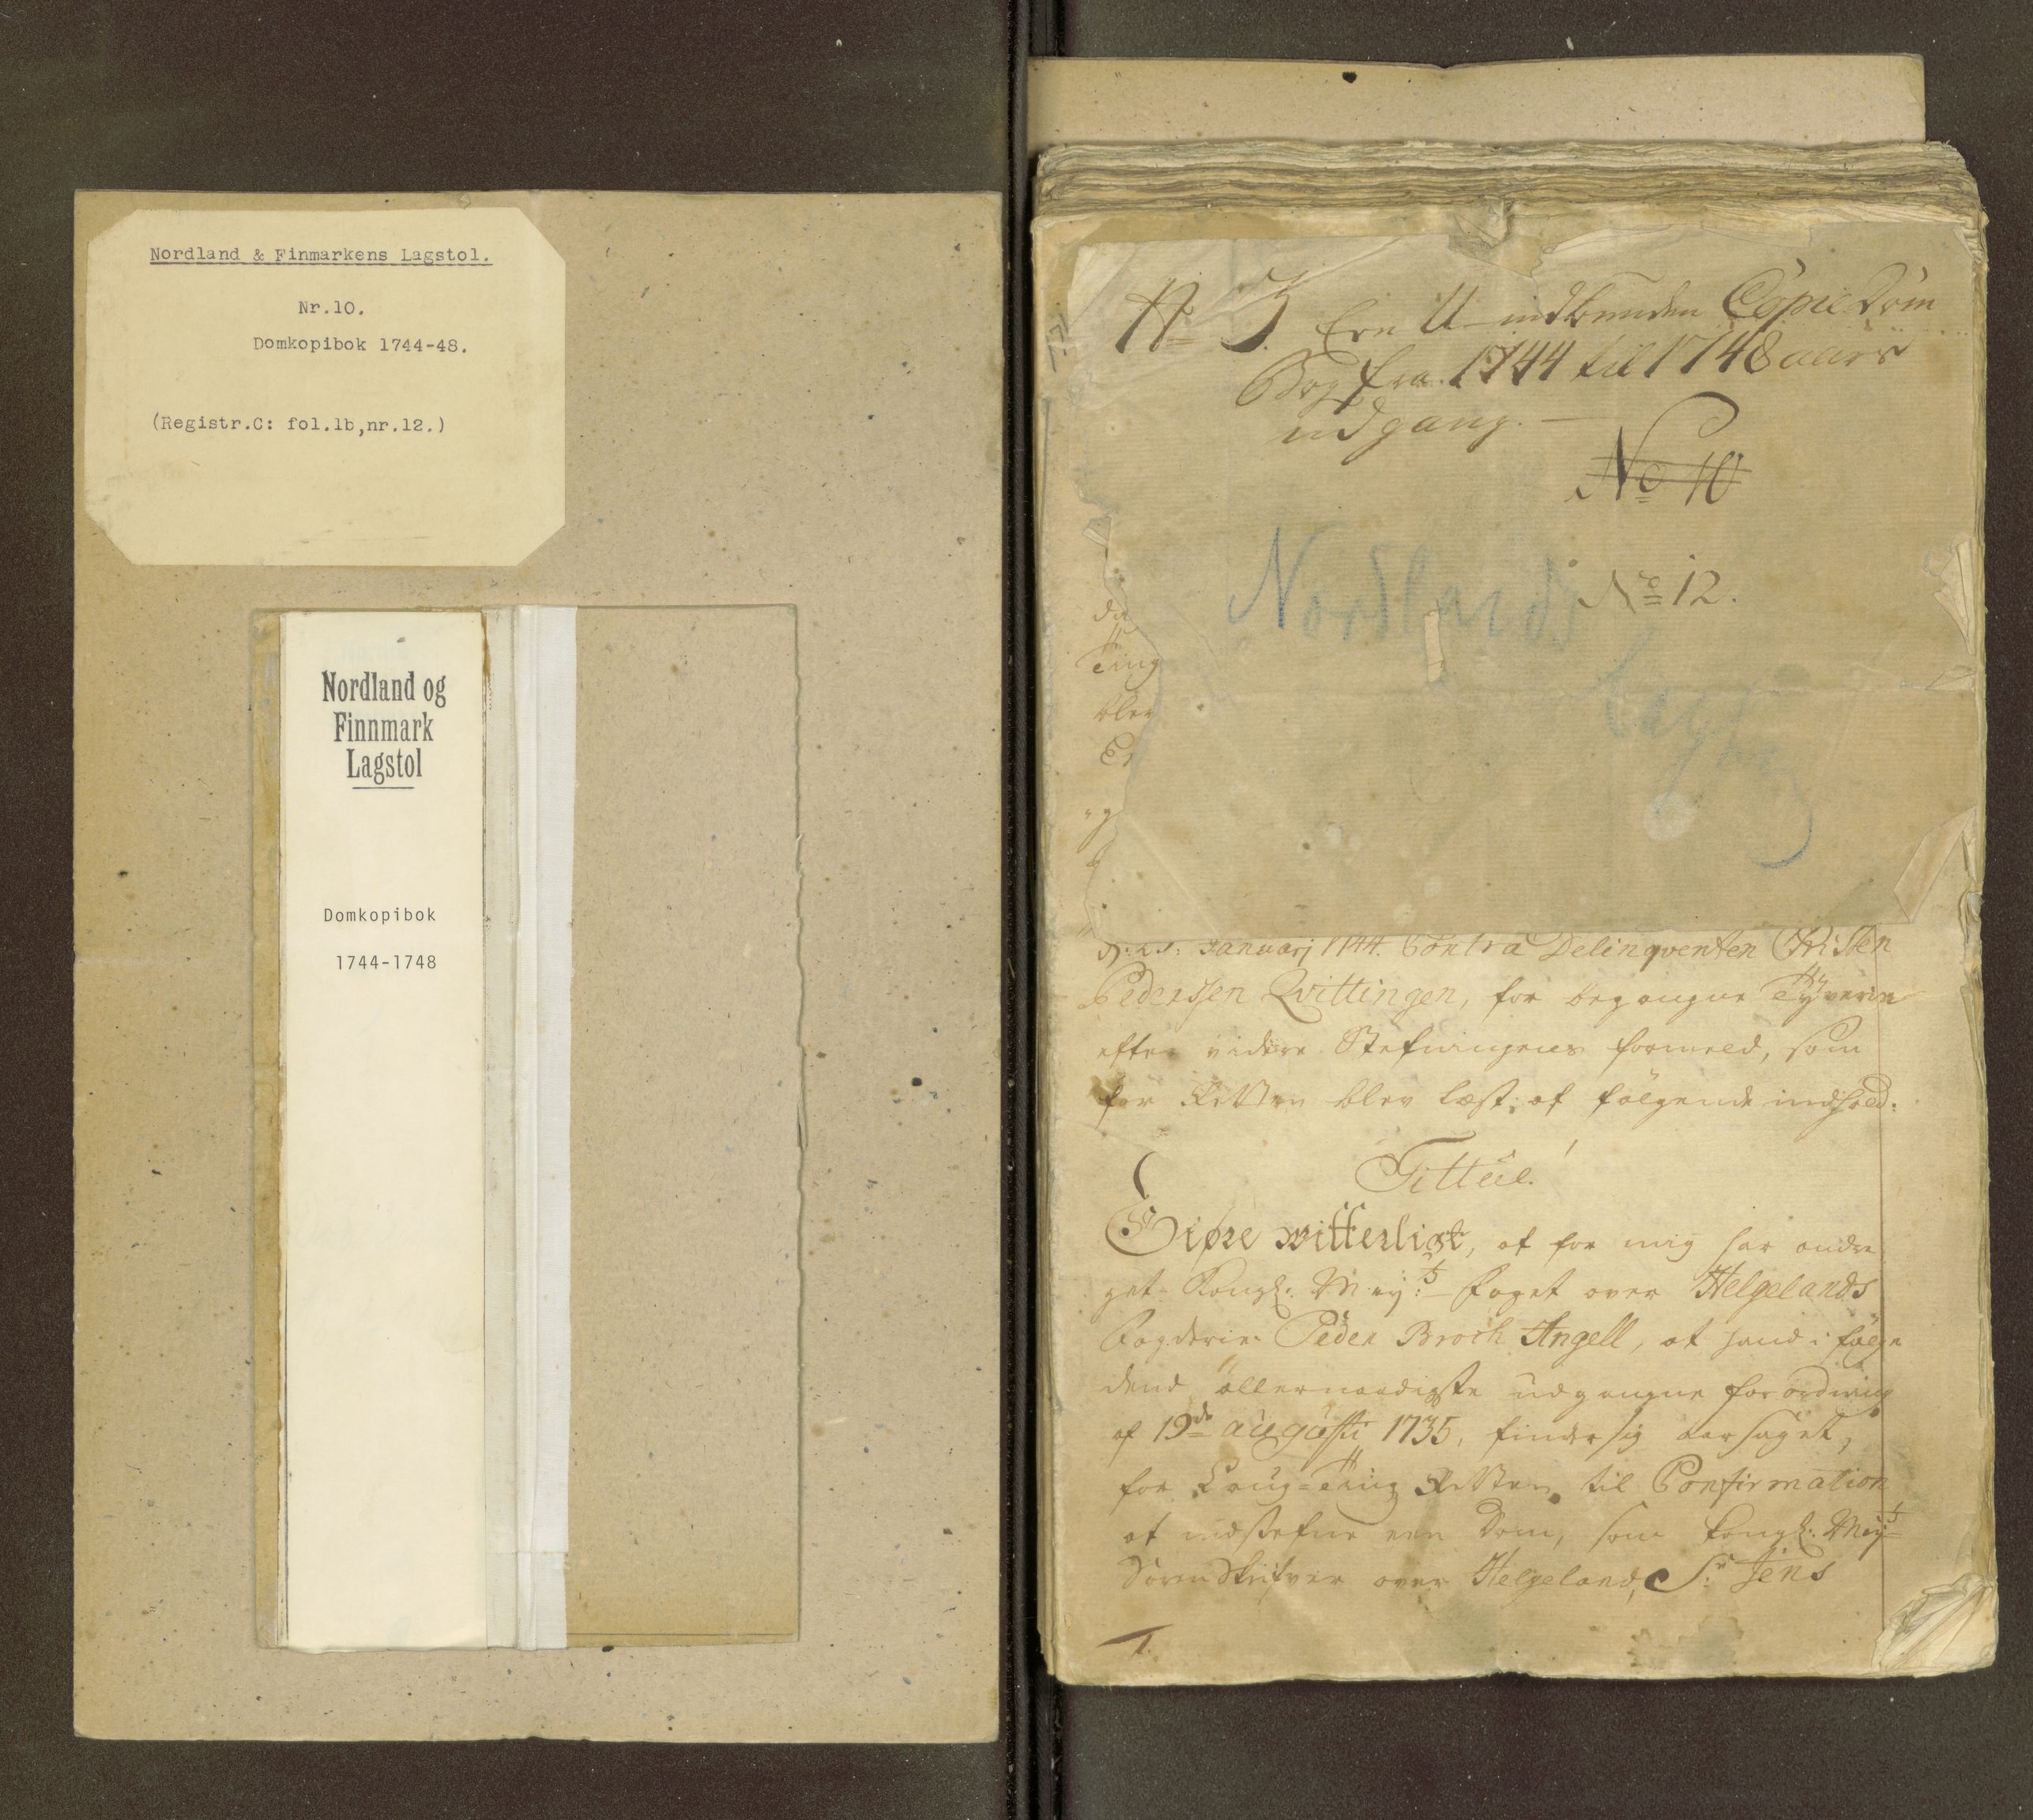 Nordland & Finmarkens Lagstol.
Nr.10.
Domkopibok 1744-48.
(Registr.C: fol.1b,nr.12.)
Nordland og
Finnmark
Lagstol
Domkopibok
1744-1748
No 3 Een U-indbunden Copie Dom
Bog fra 1744 til 1748 aars
udgang.
No 10
Nordlands
No 12.
da
Ting
blev
Januarj 1744. Contra Delinqventen Christen
Pederssen Qvittingen, for begangne Tyverie
efter videre Stefningens formeld, som
for Retten blev læst, af følgende indhold:
Tittul!
Giøre vitterligt, at for mig har andra
get Kongl: May:ts foget over Helgelands
fogderie Peder Broch Angell, at hand i følge
dend allernaadigste udgangne forordning
af 19de augusti 1735, finder sig aarsaget,
for Laug-Ting Retten til Confirmation
at indstefne een Dom, som Kongl: May:ts
Sorenskrifver over Helgeland, Sr Jens
1.